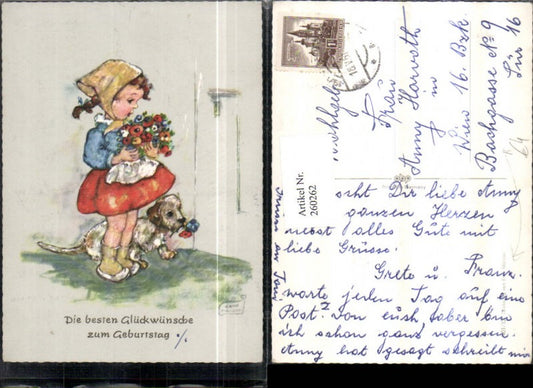 Die besten Glückwünsche
zum Geburtstag
Frau
Anny Horvath
in
Wien 16. Bzk.
Bachgasse No 9
Tür 16
Artikel Nr.
260262
Dir liebe Anny
ganzen Herzen
nebst alles Gute mit
liebe Grüsse.
Grete u. Franz.
warte jeden Tag auf eine
Post. von euch aber bin
ich schon ganz vergessen.
Anny hat gesagt schreibt mir